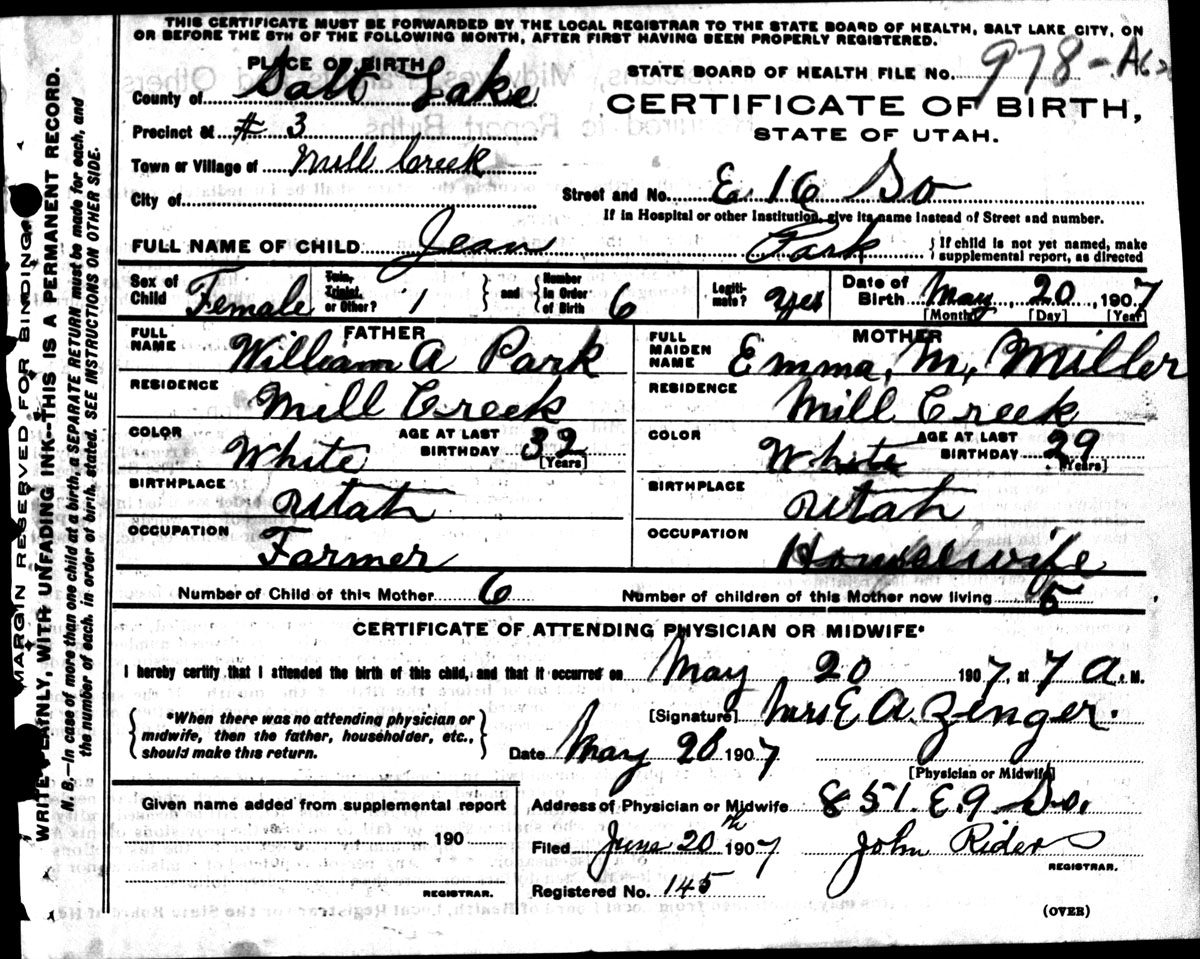 THIS CERTIFICATE MUST BE FORWARDED BY THE LOCAL REGISTRAR TO THE STATE BOARD OF HEALTH, SALT LAKE CITY, ON
OR BEFORE THE 5TH OF THE FOLLOWING MONTH, AFTER FIRST HAVING BEEN PROPERLY REGISTERED.
MARGIN RESERVED FOR BINDING.
WRITE PLAINLY, WITH UNFADING INK--THIS IS A PERMANENT RECORD.
N. B.—In case of more than one child at a birth, a SEPARATE RETURN must be made for each, and
the number of each, in order of birth, stated. SEE INSTRUCTIONS ON OTHER SIDE.
PLACE OF BIRTH
STATE BOARD OF HEALTH FILE NO. 978-
County of Salt Lake
CERTIFICATE OF BIRTH,
Precinct of # 3
STATE OF UTAH.
Town or Village of Mill Creek
City of
Street and No. E 16 So
If in Hospital or other Institution, give its name instead of Street and number.
FULL NAME OF CHILD Jean Park
If child is not yet named, make
supplemental report, as directed
Sex of Child Female
Twin, Triplet, or Other? 1 and Number in Order of Birth 6
Legitimate? Yes
Date of Birth May 20 1907
[Month] [Day] [Year]
FATHER
FULL NAME William A Park
MOTHER
FULL MAIDEN NAME Emma, M, Miller
RESIDENCE Mill Creek
RESIDENCE Mill Creek
COLOR White AGE AT LAST BIRTHDAY 32 [Years]
COLOR White AGE AT LAST BIRTHDAY 29 [Years]
BIRTHPLACE Utah
BIRTHPLACE Utah
OCCUPATION Farmer
OCCUPATION Housewife
Number of Child of this Mother 6
Number of children of this Mother now living 5
CERTIFICATE OF ATTENDING PHYSICIAN OR MIDWIFE*
I hereby certify that I attended the birth of this child, and that it occurred on May 20 1907, at 7 A. M.
*When there was no attending physician or
midwife, then the father, householder, etc.,
should make this return.
[Signature] Mrs E A. Zenger.
Date May 20 1907
[Physician or Midwife]
Given name added from supplemental report
190
REGISTRAR.
Address of Physician or Midwife 851. E. 9 So.
Filed June 20th 1907 John Rider
REGISTRAR.
Registered No. 145
(OVER)